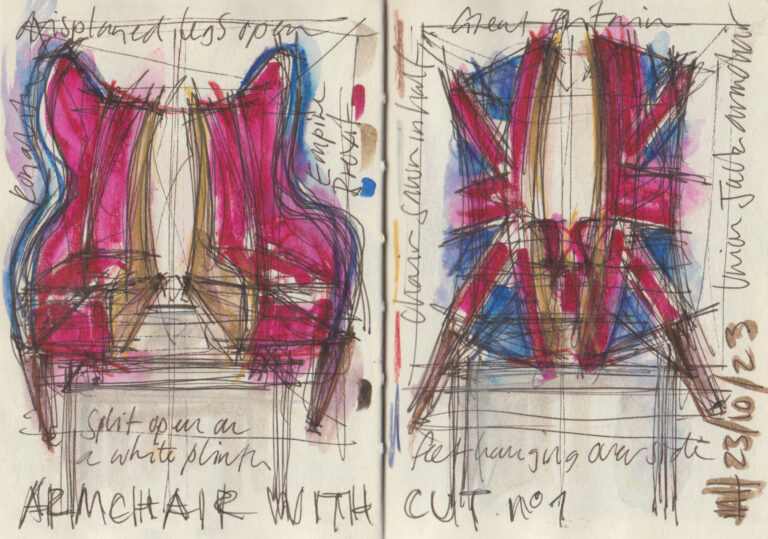 displayed legs open
Empire
Brexit
Split open on
a white plinth
ARMCHAIR WITH
Great Britain
chair sawn in half
Union Jack armchair
feet hanging over side
CUT nº1
23/10/23